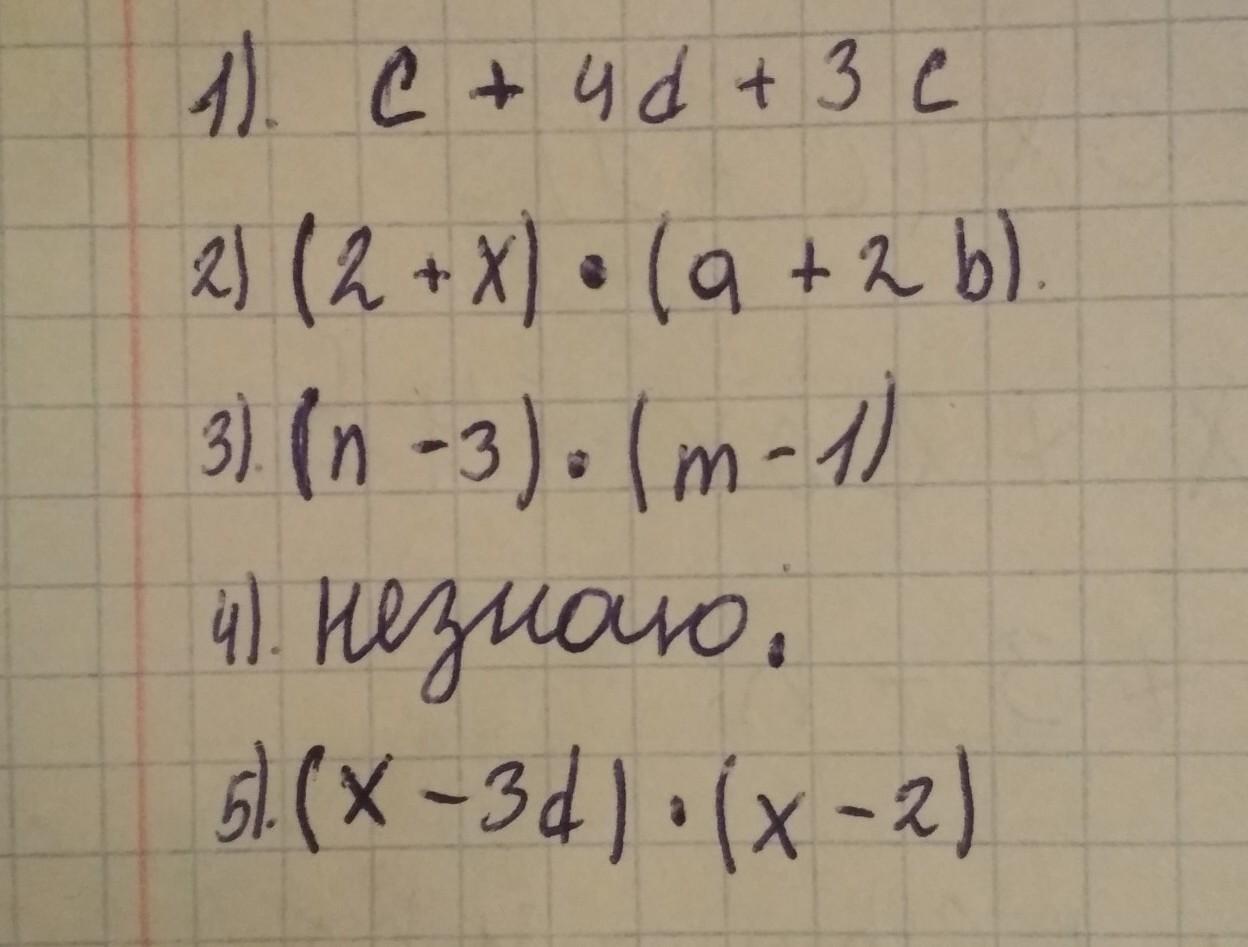 1). c + 4d + 3c
2) (2 + x) • (a + 2b).
3). (n - 3) • (m - 1)
4). незнаю.
5). (x - 3d) • (x - 2)